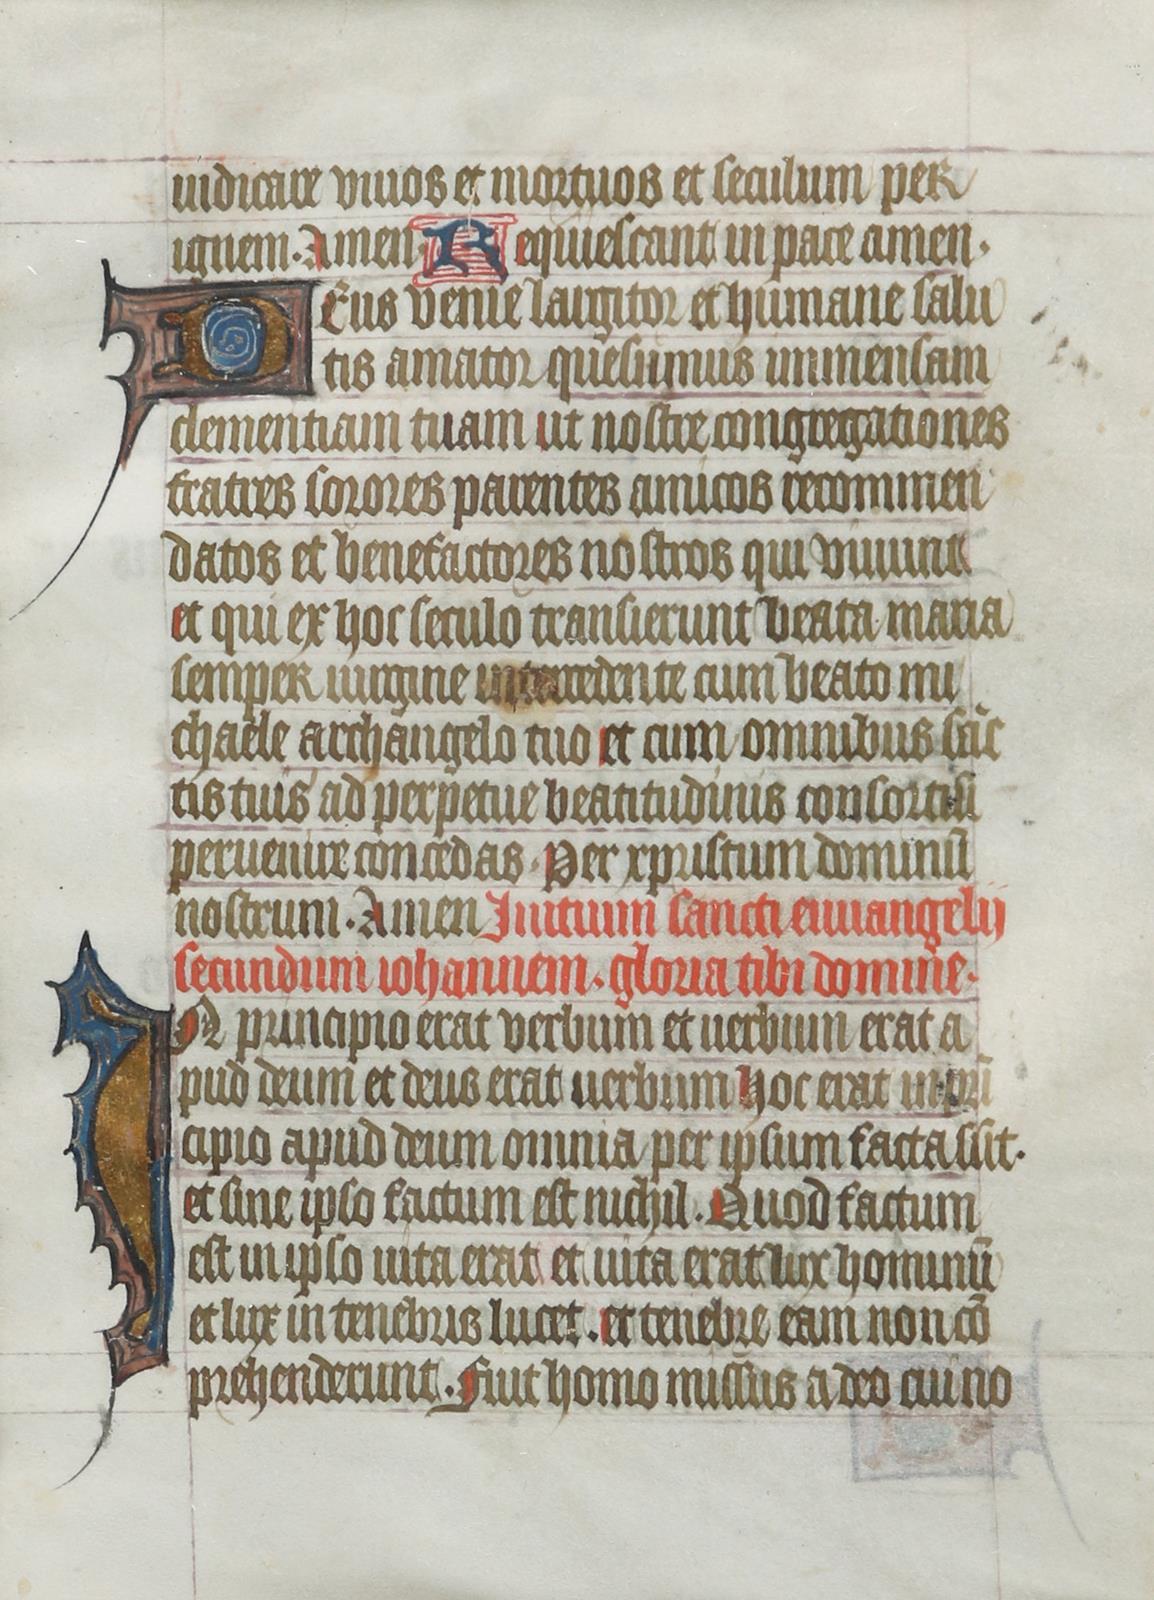 iudicare viuos et mortuos et seculum per
ignem. Amen. Requiescant in pace amen.
Deus venie largitor et humane salu
tis amator quesumus immensam
clementiam tuam ut nostre congregationes
fratres sorores parentes amicos recommen
datos et benefactores nostros qui viuunt
et qui ex hoc seculo transierunt beata maria
semper uirgine intercedente cum beato mi
chaele archangelo tuo et cum omnibus sāc
tis tuis ad perpetue beatitudinis consortiū
peruenire concedas. Per xpristum dominū
nostrum. Amen Initium sancti euuangelij
secundum iohannem. gloria tibi domine.
IN principio erat verbum et uerbum erat a
pud deum et deus erat uerbum hoc erat in pri
cipio apud deum omnia per ipsum facta sūt.
et sine ipso factum est nichil. Quod factum
est in ipso uita erat et uita erat lux hominū
et lux in tenebris lucet. et tenebre eam non cō
prehenderunt. Fuit homo missus a deo cui no